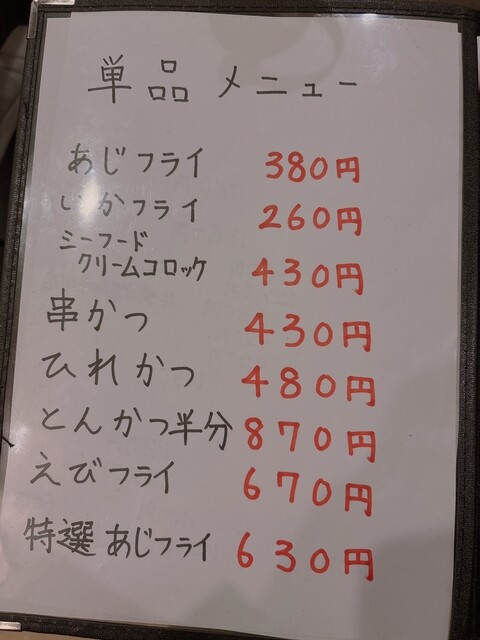 単品 メニュー
あじフライ 380円
いかフライ 260円
シーフード
クリームコロッケ 430円
串かつ 430円
ひれかつ 480円
とんかつ半分 870円
えびフライ 670円
特選 あじフライ 630円